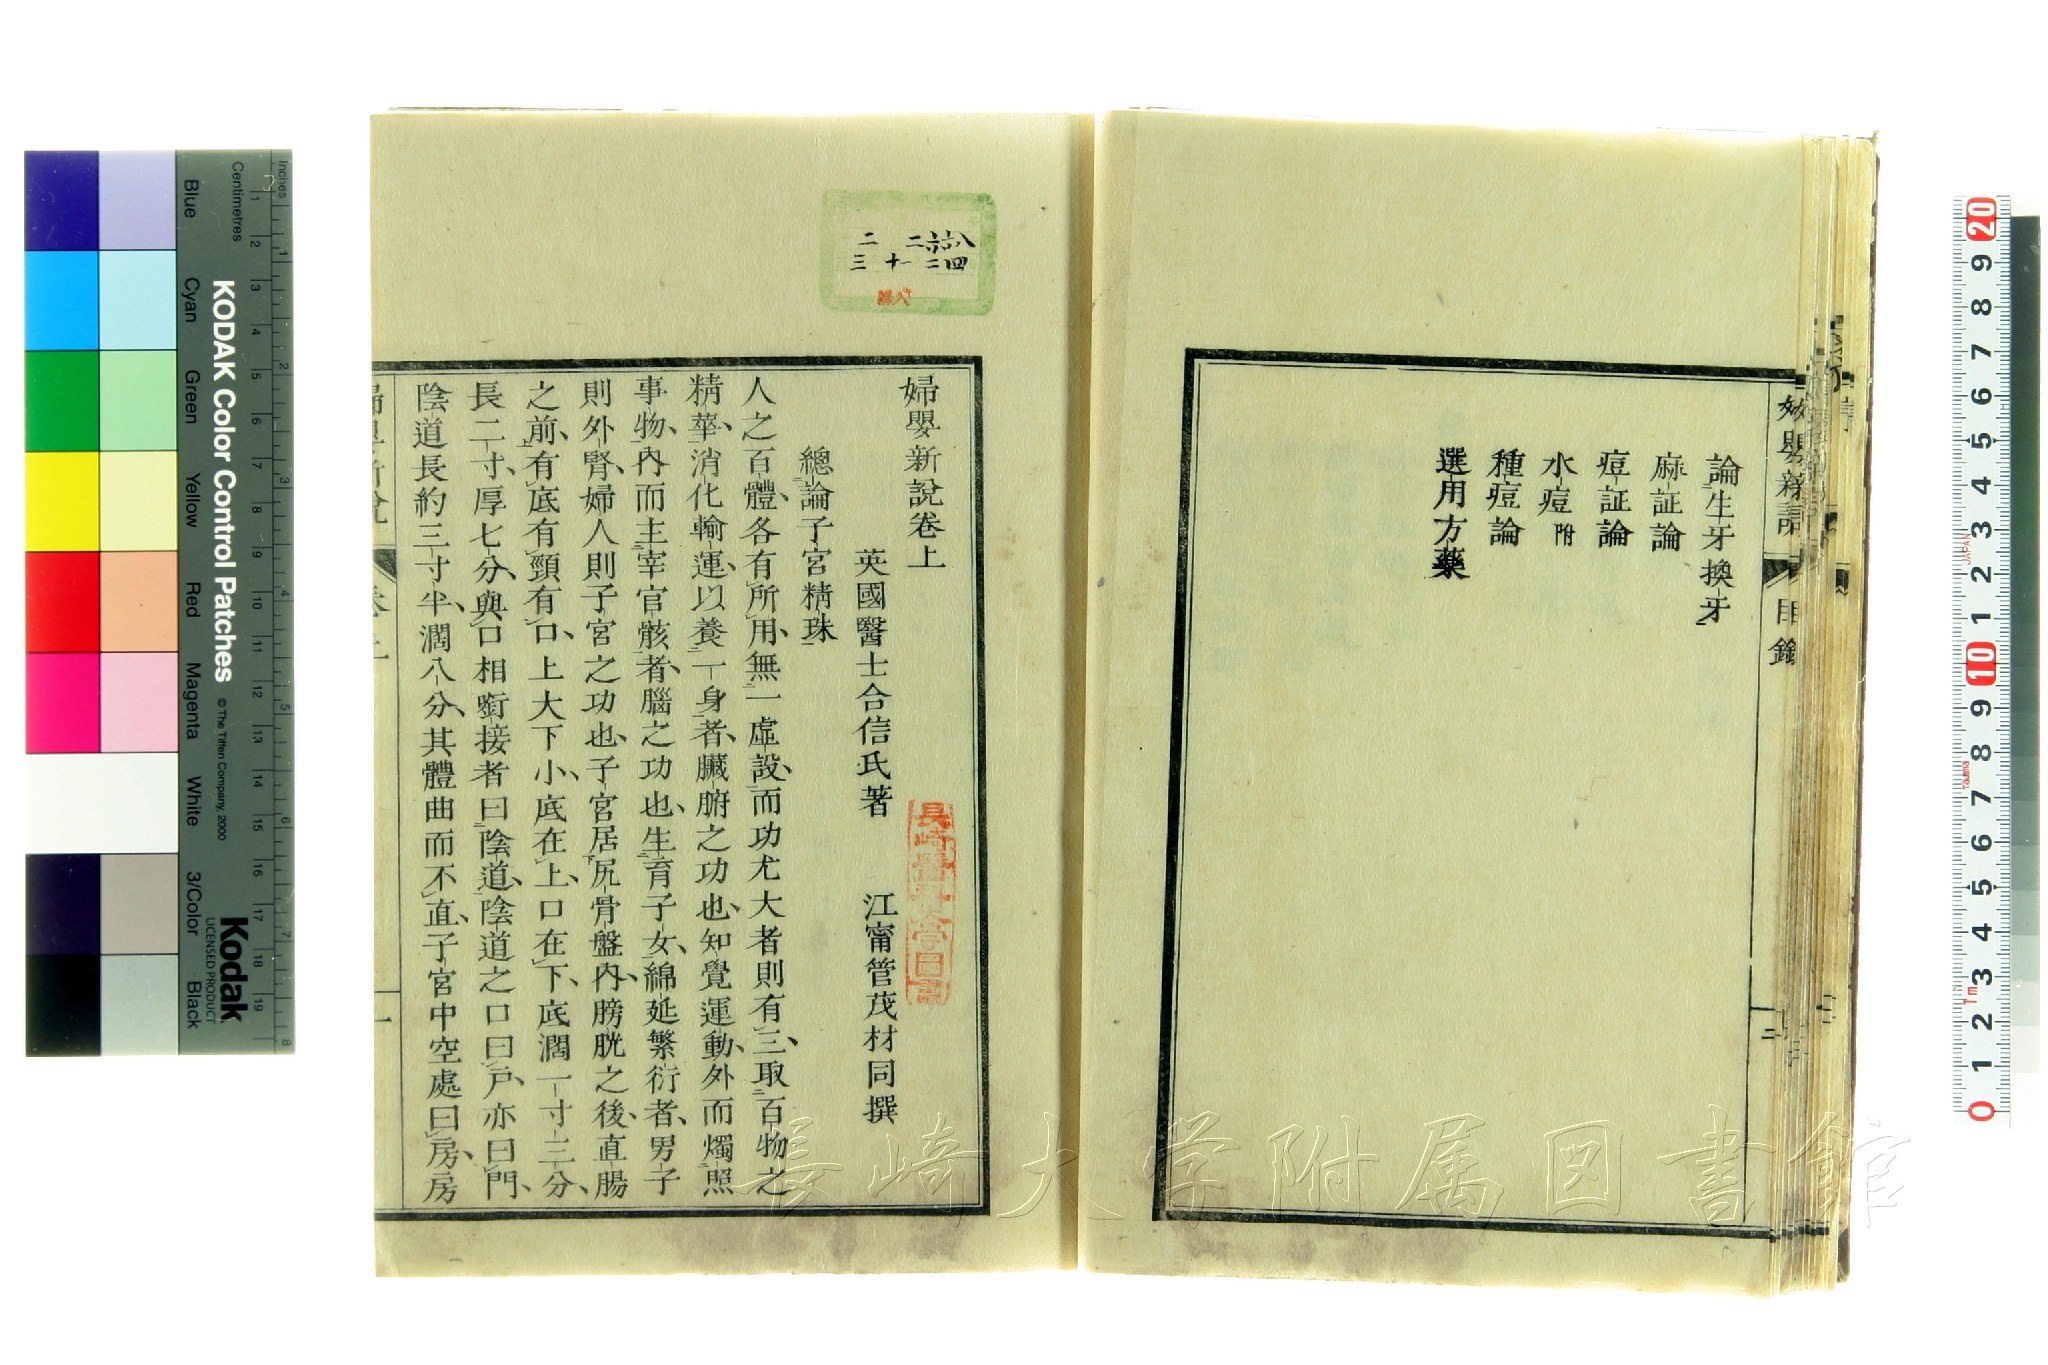 論生牙換牙
麻証論
痘証論
水痘附
種痘論
選用方藥
目錄
二
婦嬰新說卷上
英國醫士合信氏著 江甯管茂材同撰
總論子宮精珠
人之百體、各有所用、無一虛設、而功尤大者則有三、取百物之
精華、消化輸運、以養一身者、臟腑之功也、知覺運動、外而燭照
事物、內而主宰官骸者、腦之功也、生育子女、綿延繁衍者、男子
則外腎、婦人則子宮之功也、子宮居尻骨盤內、膀胱之後、直腸
之前、有底有頸有口、上大下小、底在上、口在下、底濶一寸三分、
長二寸、厚七分、與口相銜接者曰陰道、陰道之口曰戶、亦曰門、
陰道長約三寸半、濶八分、其體曲而不直、子宮中空處曰房、房
一
長崎大学附属図書館
KODAK Color Control Patches
© The Tiffen Company, 2000
Kodak
LICENSED PRODUCT
Inches
Centimetres
Blue
Cyan
Green
Yellow
Red
Magenta
White
3/Color
Black
1 2 3 4 5 6 7 8 9 10 11 12 13 14 15 16 17 18 19
1 2 3 4 5 6 7 8
20 9 8 7 6 5 4 3 2 1 10 9 8 7 6 5 4 3 2 1 0
JAPAN
Tajima